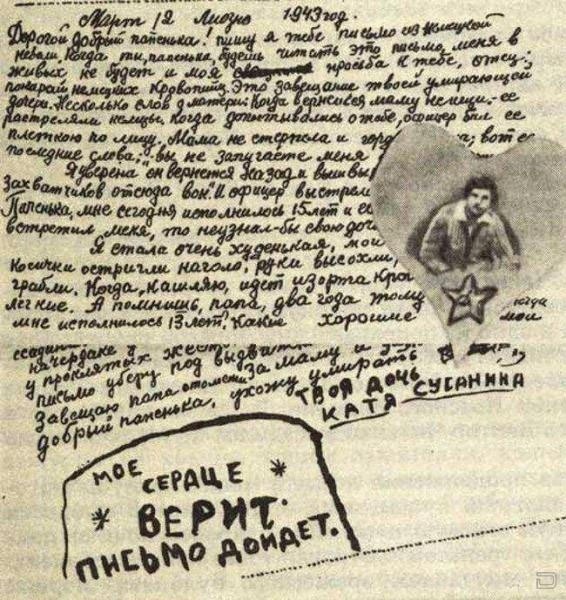 Март, 12 Лиозно 1943 год.
Дорогой добрый папенька! пишу я тебе письмо из немецкой
неволи. Когда ты, папенька, будешь читать это письмо, меня в
живых не будет и моя просьба к тебе, отец:
покарай немецких кровопийц. Это завещание твоей умирающей
дочери. Несколько слов о матери: Когда вернешься маму не ищи. - ее
растреляли немцы. Когда допытывались о тебе, офицер бил ее
плеткою по лицу. Мама не стерпела и вот ее
последние слова; „вы не запугаете меня
Я уверена он вернется назад и вышвы
Захватчиков отсюда вон." И офицер выстрелил
Папенька, мне сегодня исполнилось 15 лет и ес
встретил меня, то неузнал-бы свою доч
Я стала очень худенькая, мои
Косички остригли наголо, руки высохли,
грабли. Когда, кашляю, идет из орта кро
легкие. А помнишь, папа, два года тому когда
мне исполнилось 13 лет. Какие хорошие мои
ссади
на чердаке
у проклятых
письмо уберу под
Завещаю папа отомсти За маму и
добрый папенька, ухожу умирать
ТВОЯ ДОЧЬ
КАТЯ СУСАНИНА
МОЕ
СЕРДЦЕ
ВЕРИТ.
ПИСЬМО ДОЙДЕТ.